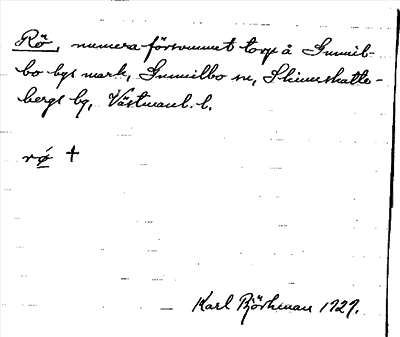 Rö, numera försvunnet torp å Gunnil-
bo bys mark, Gunnilbo sn, Skinnskatte-
bergs bg, Västmanl. l.
rǿ †
Karl Björkman 1929.